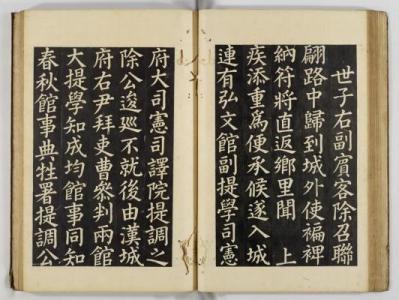 世子右副賓客除召聯
翩路中歸到城外使褊裨
納符將直返鄉里聞 上
疾添重爲便承候遂入城
連有弘文館副提學司憲
府大司憲司譯院提調之
除公逡廵不就後由漢城
府右尹拜吏曹叅判兩館
大提學知成均館事同知
春秋館事典牲署提調公